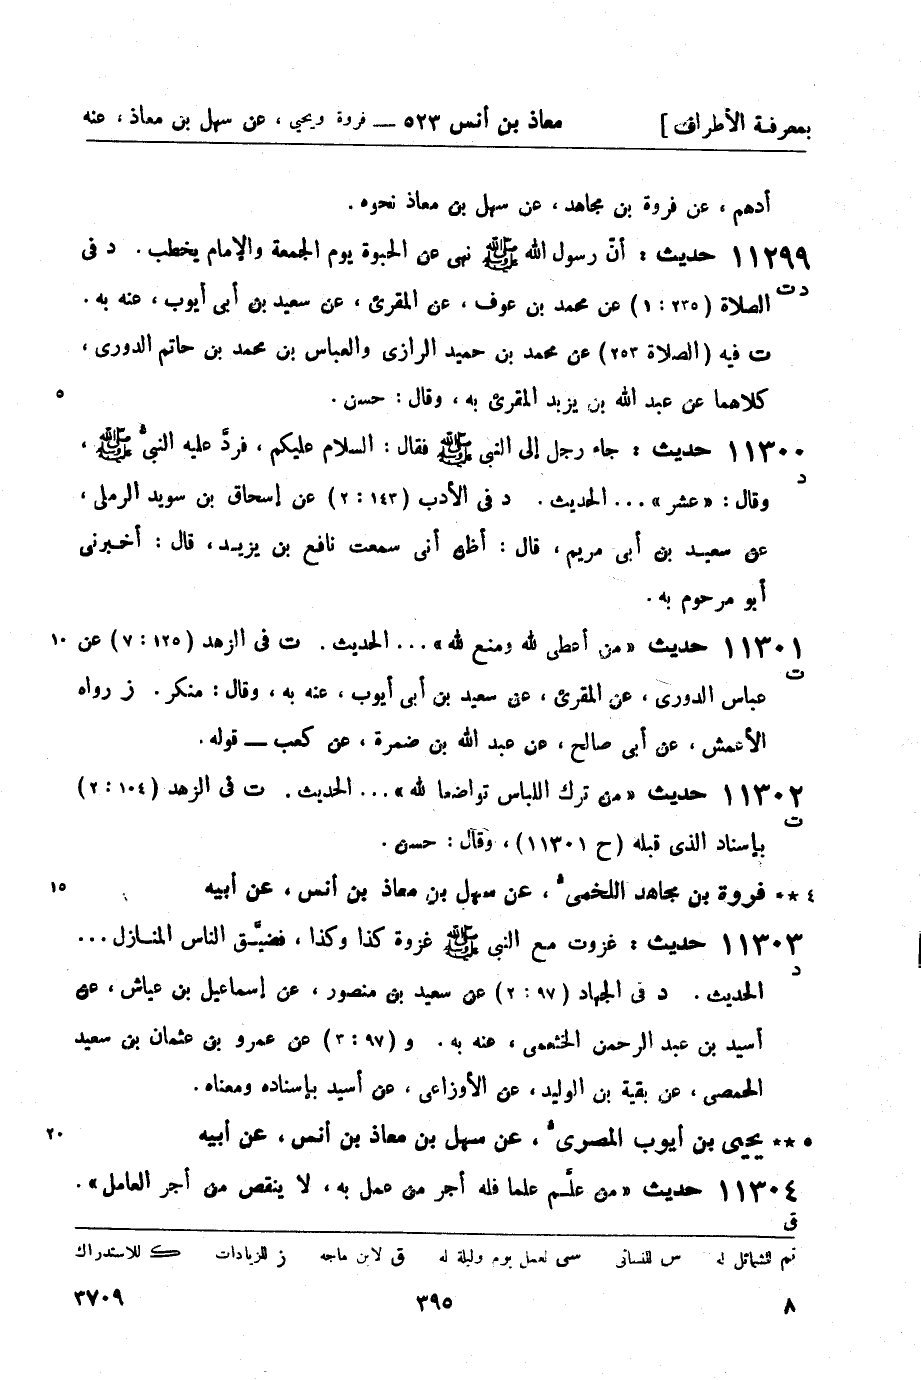 بمعرفة الأطراف ] معاذ بن أنس ٥٢٣ — فروة ويحيى ، عن سهل بن معاذ ، عنه
أدهم ، عن فروة بن مجاهد، عن سهل بن معاذ نحوه.
١١٢٩٩ حديث : أنّ رسول الله ﷺ نهى عن الحبوة يوم الجمعة والإمام يخطب. د فى
د ت
الصلاة (٢٣٥ : ١) عن محمد بن عوف ، عن المقرئ ، عن سعيد بن أبى أيوب ، عنه به.
ت فيه (الصلاة ٢٥٣) عن محمد بن حميد الرازى والعباس بن محمد بن حاتم الدورى ،
كلاهما عن عبد الله بن يزيد المقرئ به ، وقال : حسن. ٥
١١٣٠٠ حديث : جاء رجل إلى النبى ﷺ فقال : السلام عليكم ، فردَّ عليه النبىُّ ﷺ ،
د
وقال : «عشر» ... الحديث. د فى الأدب (١٤٣ : ٢) عن إسحاق بن سويد الرملى ،
عن سعيد بن أبى مريم ، قال : أظن أنى سمعت نافع بن يزيد ، قال : أخبرنى
أبو مرحوم به.
١١٣٠١ حديث «من أعطى لله ومنع لله» ... الحديث. ت فى الزهد (١٢٥ : ٧) عن ١٠
ت
عباس الدورى ، عن المقرئ ، عن سعيد بن أبى أيوب ، عنه به ، وقال : منكر. ز رواه
الأعمش ، عن أبى صالح ، عن عبد الله بن ضمرة ، عن كعب — قوله.
١١٣٠٢ حديث «من ترك اللباس تواضعا لله» ... الحديث. ت فى الزهد (١٠٤ : ٢)
ت
بإسناد الذى قبله (ح ١١٣٠١) ، وقال : حسن.
٤ ** فروة بن مجاهد اللخمى ، عن سهل بن معاذ بن أنس ، عن أبيه ١٥
١١٣٠٣ حديث : غزوت مع النبى ﷺ غزوة كذا وكذا ، فضيَّق الناس المنازل ...
د
الحديث. د فى الجهاد (٩٧ : ٢) عن سعيد بن منصور ، عن إسماعيل بن عياش ، عن
أسيد بن عبد الرحمن الخثعمى ، عنه به. و (٩٧ : ٣) عن عمرو بن عثمان بن سعيد
الحمصى ، عن بقية بن الوليد ، عن الأوزاعى ، عن أسيد بإسناده ومعناه.
٥ ** يحيى بن أيوب المصرى ، عن سهل بن معاذ بن أنس ، عن أبيه ٢٠
١١٣٠٤ حديث «من علَّم علما فله أجر من عمل به ، لا ينقص من أجر العامل».
ق
تم للشمائل له س للنسائى سى لعمل يوم وليلة له ق لابن ماجه ز للزيادات ك للاستدراك
٨ ٣٩٥ ٣٧٠٩